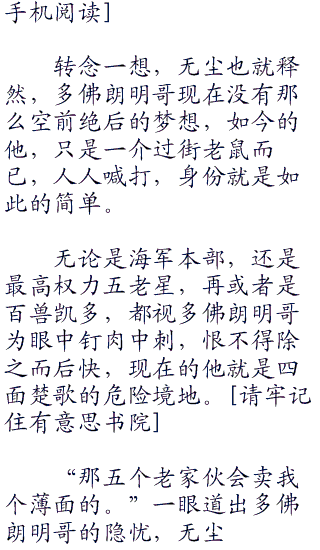 手机阅读]
转念一想，无尘也就释
然，多佛朗明哥现在没有那
么空前绝后的梦想，如今的
他，只是一个过街老鼠而
已，人人喊打，身份就是如
此的简单。
无论是海军本部，还是
最高权力五老星，再或者是
百兽凯多，都视多佛朗明哥
为眼中钉肉中刺，恨不得除
之而后快，现在的他就是四
面楚歌的危险境地。[请牢记
住有意思书院]
“那五个老家伙会卖我
个薄面的。”一眼道出多佛
朗明哥的隐忧，无尘